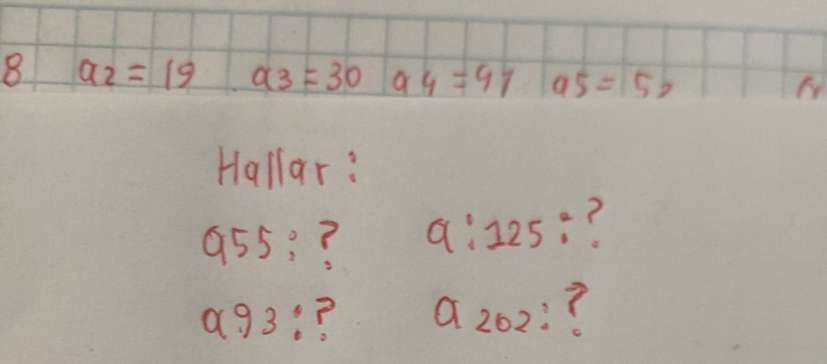 8 a2 = 19 a3 = 30 a4 = 41 a5 = 52
Hallar:
a55:? a:125:?
a93:? a202:?